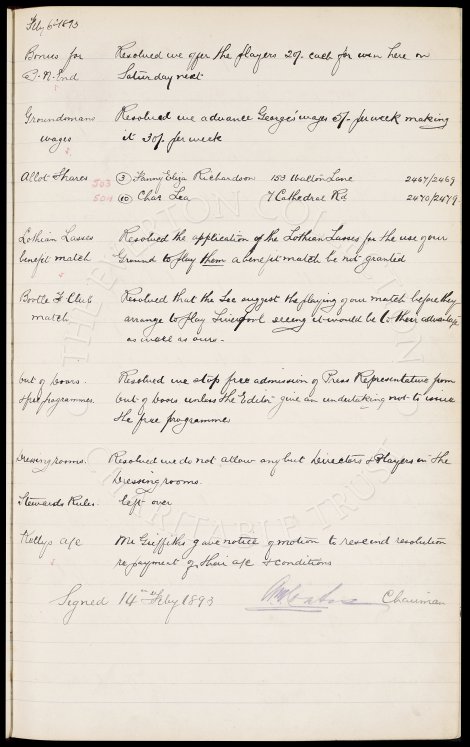 Feby 6th 1893
Bonus for Resolved we offer the players 20/. each for win here on
P. N. End Saturday next
Groundsmans Resolved we advance George's wages 5/. per week making
wages it 30/. per week
Allot Shares 503 (3) Fanny Eliza Richardson 153 Walton Lane 2467/2469
504 (10) Chas Lea 7 Cathedral Rd 2470/2479
Lothian Lasses Resolved the application of the Lothian Lasses for the use of our
benefit match Ground to play them a benefit match be not granted
Bootle F Club Resolved that the Sec suggest the playing of our match before they
match arrange to play Liverpool seeing it would be to their advantage
as well as ours.
Out of Doors. Resolved we stop free admission of Press Representative from
& free programmes. Out of Doors unless the Editor give an undertaking not to issue
the free programmes
Dressing rooms. Resolved we do not allow any but Directors & Players in the
Dressing rooms.
Stewards Rules left over
Kellys a/c Mr Griffiths gave notice of motion to rescind resolution
re payment of their a/c & conditions
Signed 14th Feby 1893 Chairman
THE EVERTON COLLECTION CHARITABLE TRUST